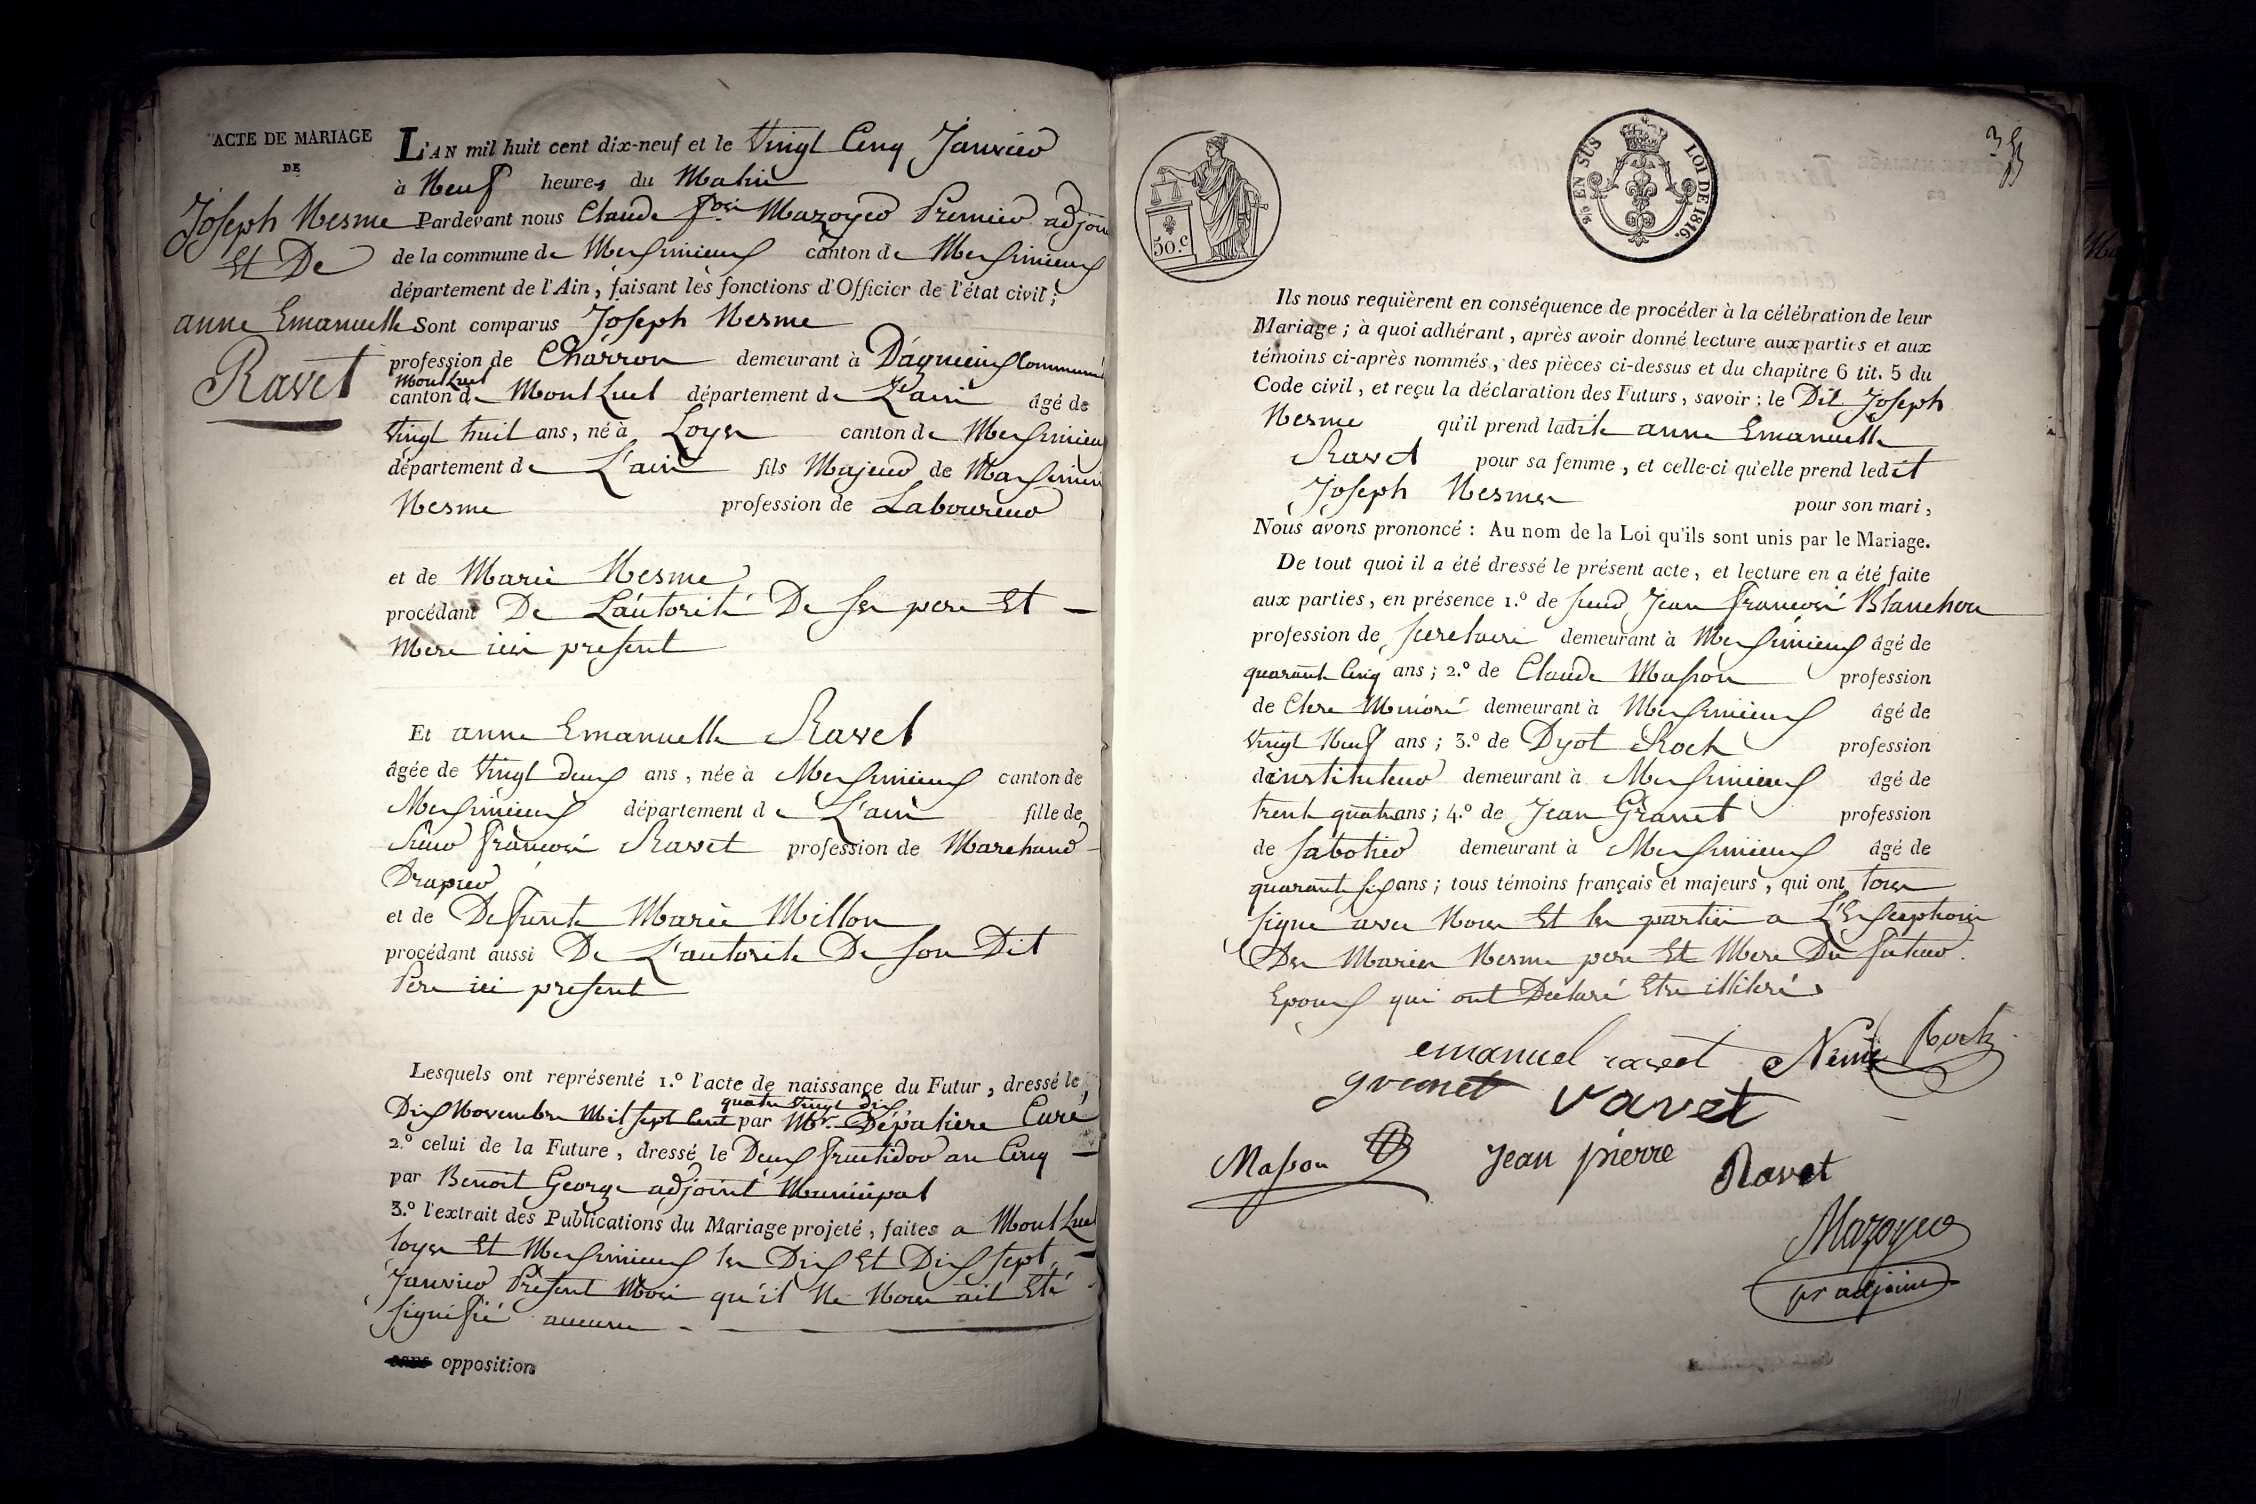 ACTE DE MARIAGE
DE
Joseph Nesme
Et De
anne Emanuelle
Ravet
L'AN mil huit cent dix-neuf et le Vingt Cinq Janvier
à Neuf heures du Matin
Pardevant nous Claude Mazoyer Premier adjoin
de la commune de Meximieux canton de Meximieux
département de l'Ain, faisant les fonctions d'Officier de l'état civil;
Sont comparus Joseph Nesme
profession de Charron demeurant à Dagneux Commune
Montluel
canton de Montluel département de L'ain âgé de
Vingt huit ans, né à Loyes canton de Meximieux
département de L'ain fils Majeur de
Nesme profession de Laboureur
et de Marie Nesme
procédant De L'autorité De ses pere Et
Mere ici present
Et anne Emanuelle Ravet
âgée de Vingt deux ans, née à Meximieux canton de
Meximieux département de L'ain fille de
Sieur françois Ravet profession de Marchand
Drapier
et de Defunte Marie Millon
procédant aussi De L'autorité De son Dit
Pere ici present
Lesquels ont représenté 1.º l'acte de naissance du Futur, dressé le
quatre Vingt dix
Dix Novembre Mil sept Cent par Mr. Dépatiere Curé
2.º celui de la Future, dressé le Deux fructidor an Cinq
par Benoit George adjoint Municipal
3.º l'extrait des Publications du Mariage projeté, faites a Montluel
loyes Et Meximieux les Dix Et Dix sept
Janvier Present Mois qu'il Ne Nous ait Eté
signifié aucune
sans opposition
50.c
EN SUS
LOI DE 1816.
Ils nous requièrent en conséquence de procéder à la célébration de leur
Mariage; à quoi adhérant, après avoir donné lecture aux parties et aux
témoins ci-après nommés, des pièces ci-dessus et du chapitre 6 tit. 5 du
Code civil, et reçu la déclaration des Futurs, savoir: le Dit Joseph
Nesme qu'il prend ladite anne Emanuelle
Ravet pour sa femme, et celle-ci qu'elle prend ledit
Joseph Nesme pour son mari,
Nous avons prononcé: Au nom de la Loi qu'ils sont unis par le Mariage.
De tout quoi il a été dressé le présent acte, et lecture en a été faite
aux parties, en présence 1.º de sieur Jean françois Blanchon
profession de secretaire demeurant à Meximieux âgé de
quarante Cinq ans; 2.º de Claude Masson profession
de Clerc Minoré demeurant à Meximieux âgé de
Vingt Neuf ans; 3.º de Dyot Roch profession
d'instituteur demeurant à Meximieux âgé de
trente quatre ans; 4.º de Jean Granet profession
de sabotier demeurant à Meximieux âgé de
quarante six ans; tous témoins français et majeurs, qui ont tous
signe avec Nous Et les parties a L'Exception
Des Maries Nesme pere Et Mere Du futur
Epoux qui ont Declaré Etre illiterés
emanuel ravet Neme Roch
granet ravet
Masson Jean pierre Ravet
Mazoyer
pr adjoint